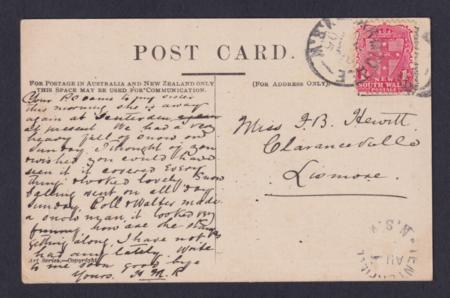 POST CARD.
FOR POSTAGE IN AUSTRALIA AND NEW ZEALAND ONLY
THIS SPACE MAY BE USED FOR COMMUNICATION.
(FOR ADDRESS ONLY).
Your P.C. came to my sister
this morning she is away
again at Tenterden
at present. We had a very
heavy fall of snow on
Sunday I thought of you
wished you could have
seen it it covered every
thing looked lovely Snow
falling sent on all day
Sunday. Coll & Walter made
a snow man, it looked very
funny, how are the
getting along. I have not
had any lately. Write
to me soon good bye
Yours. H M R
Art Series.—Copyright
Miss I. B. Hewitt
Clarenceville
Lismore.
NEW
SOUTH WALES
POSTAGE
TENTERFIELD
AU
N.S.W